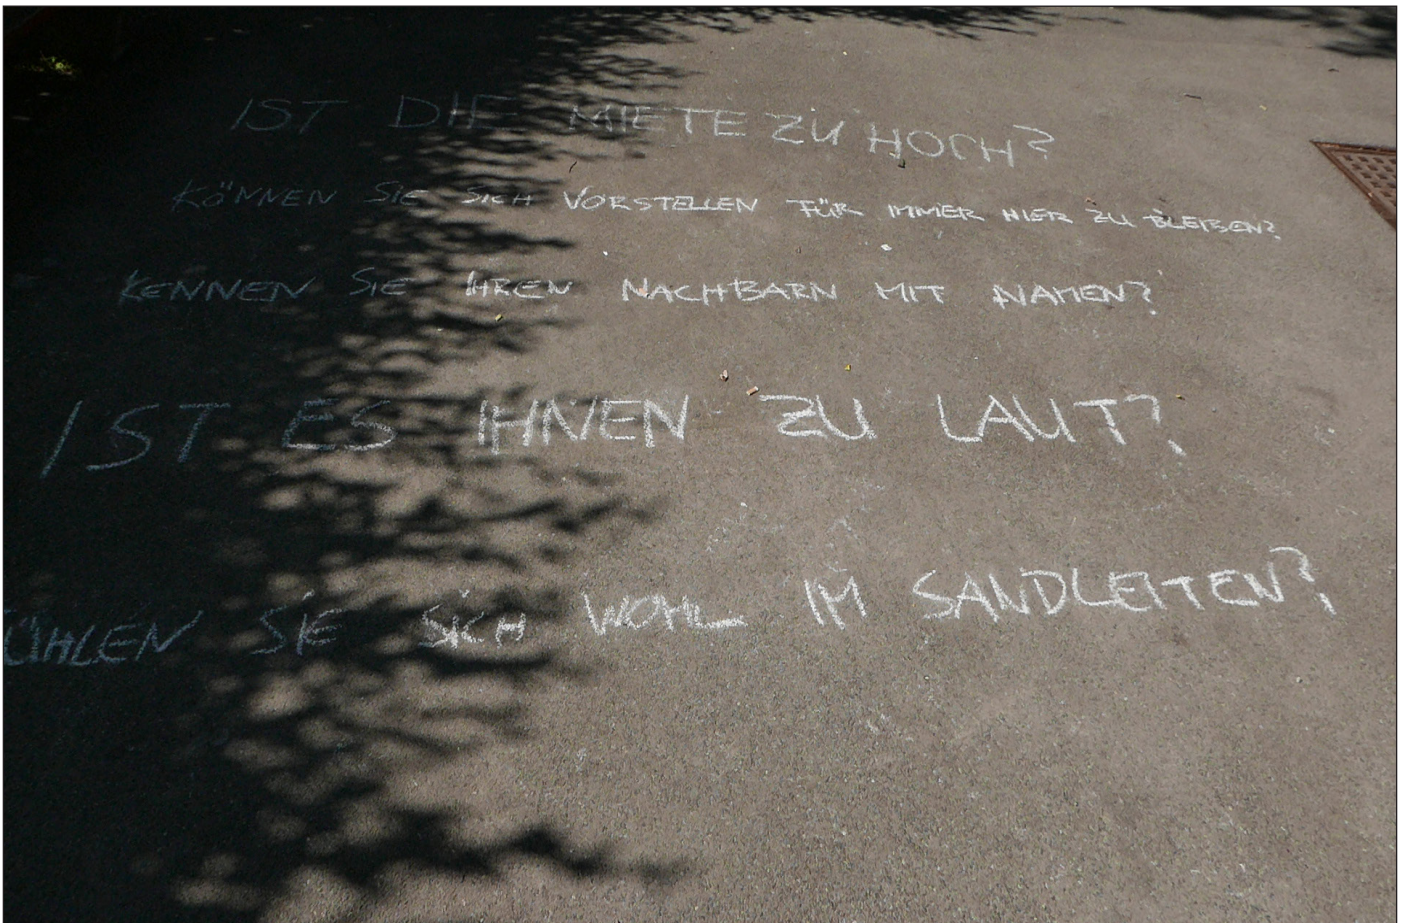 IST DIE MIETE ZU HOCH?
KÖNNEN SIE SICH VORSTELLEN FÜR IMMER HIER ZU BLEIBEN?
KENNEN SIE IHREN NACHBARN MIT NAMEN?
IST ES IHNEN ZU LAUT?
ÜHLEN SIE SICH WOHL IM SANDLEITEN?